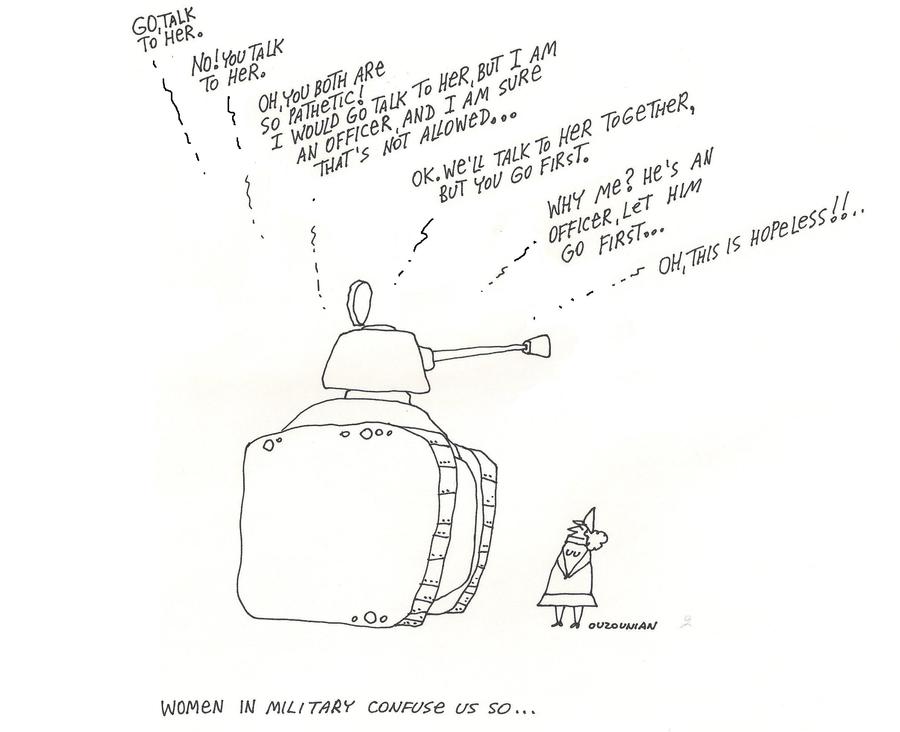 GO, TALK
TO HER.
NO! YOU TALK
TO HER.
OH, YOU BOTH ARE
SO PATHETIC!
I WOULD GO TALK TO HER, BUT I AM
AN OFFICER, AND I AM SURE
THAT'S NOT ALLOWED...
OK. WE'LL TALK TO HER TOGETHER,
BUT YOU GO FIRST.
WHY ME? HE'S AN
OFFICER, LET HIM
GO FIRST...
OH, THIS IS HOPELESS!!..
OUZOUNIAN
WOMEN IN MILITARY CONFUSE US SO...